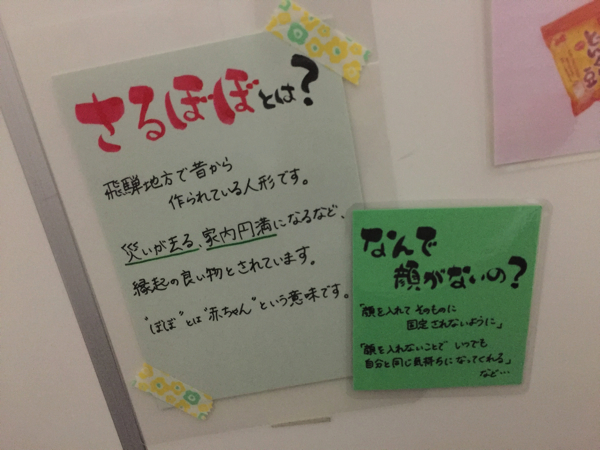 さるぼぼとは?
飛騨地方で昔から
作られている人形です。
災いが去る、家内円満になるなど、
縁起の良い物とされています。
"ぼぼ"とは"赤ちゃん"という意味です。
なんで
顔がないの?
「顔を入れて そのものに
固定されないように」
「顔を入れないことで いつでも
自分と同じ気持ちになってくれる」
など…